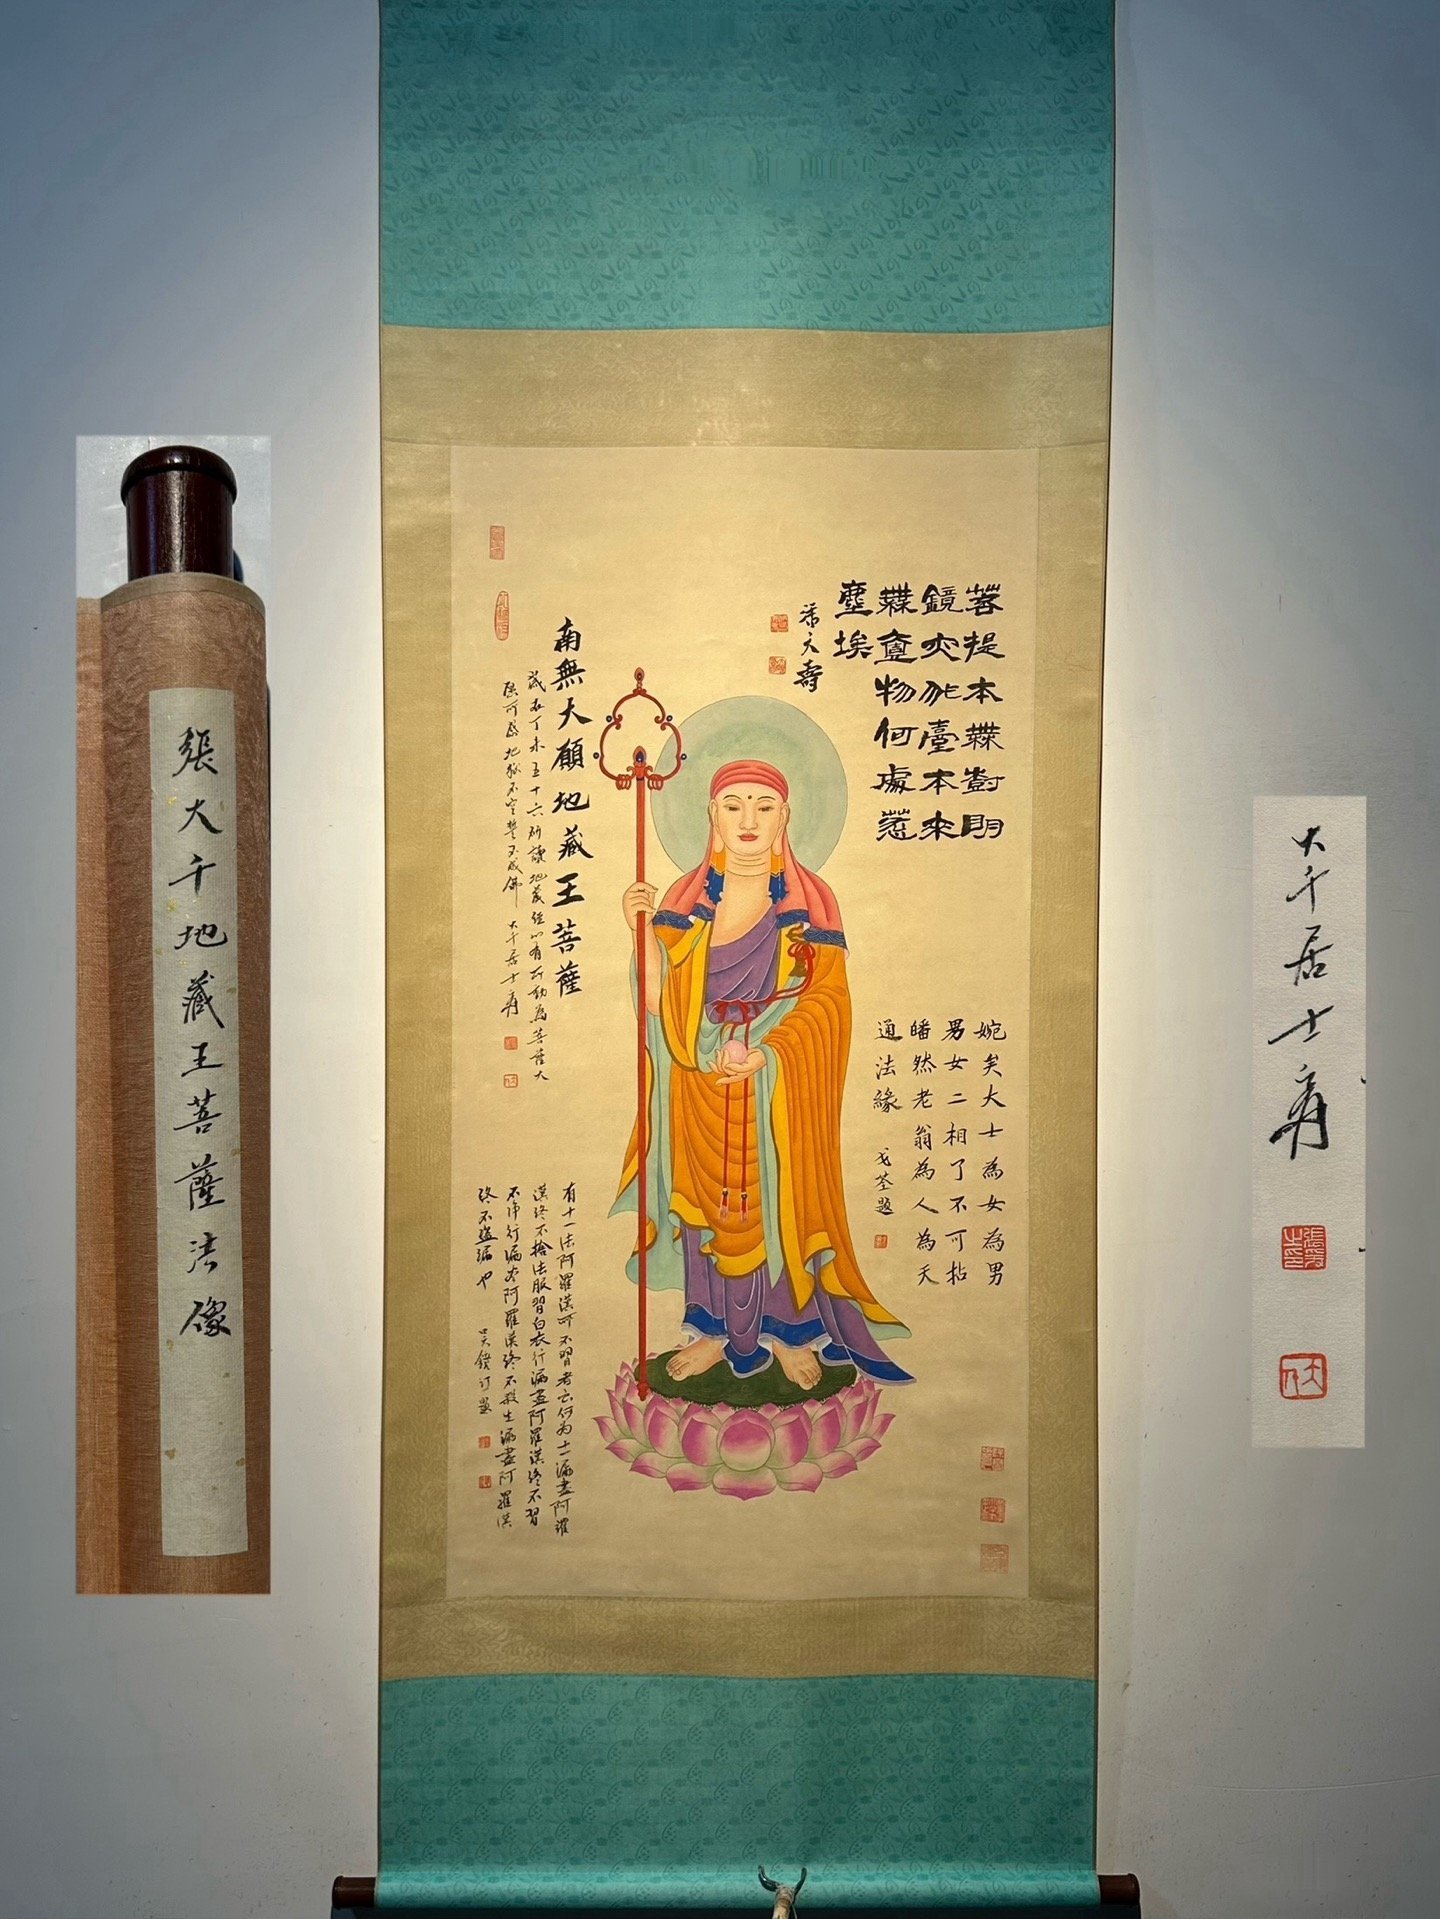 張大千地藏王菩薩法像
菩提本無樹明
鏡亦非臺本來
無一物何處惹
塵埃
潘天壽
南無大願地藏王菩薩
歲在丁未五十六所讀地藏經心有所動為菩薩大
願可感地獄不空誓不成佛 大千居士爰
婉矣大士為女為男
男女二相了不可拈
皤然老翁為人為天
通法緣
有十一法阿羅漢所不習者云何為十一漏盡阿羅
漢終不捨法服習白衣行漏盡阿羅漢終不習
不淨行漏盡阿羅漢終不殺生漏盡阿羅漢
終不盜漏也
大千居士爰
張爰之印
大千